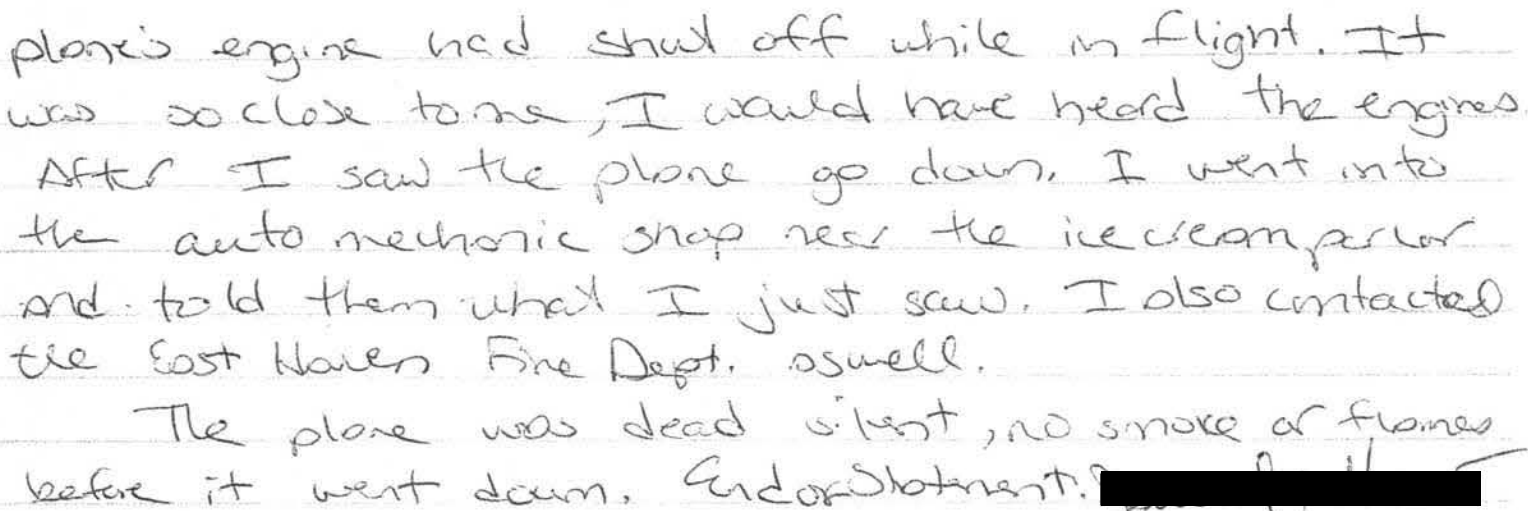 plane's engine had shut off while in flight. It
was so close to me, I would have heard the engines.
After I saw the plane go down. I went into
the auto mechanic shop near the icecream parlor
and told them what I just saw. I also contacted
the East Haven Fire Dept. aswell.
The plane was dead silent, no smoke or flames
before it went down. End of Statment.